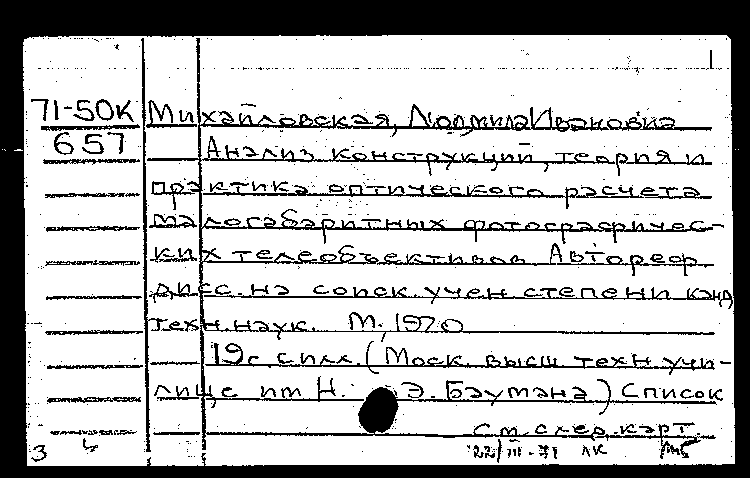 1
71-50К Михайловская, Людмила Ивановна
657 Анализ конструкций, теория и
практика оптического расчета
малогабаритных фотографичес-
ких телеобъективов Автореф
дисс. на соиск. учен степени канд
техн. наук. М., 1970
19с с илл. (Моск. высш техн учи-
лище им Н. Э. Баумана) Список
См. след. карт.
3 22/III-71 ЛК